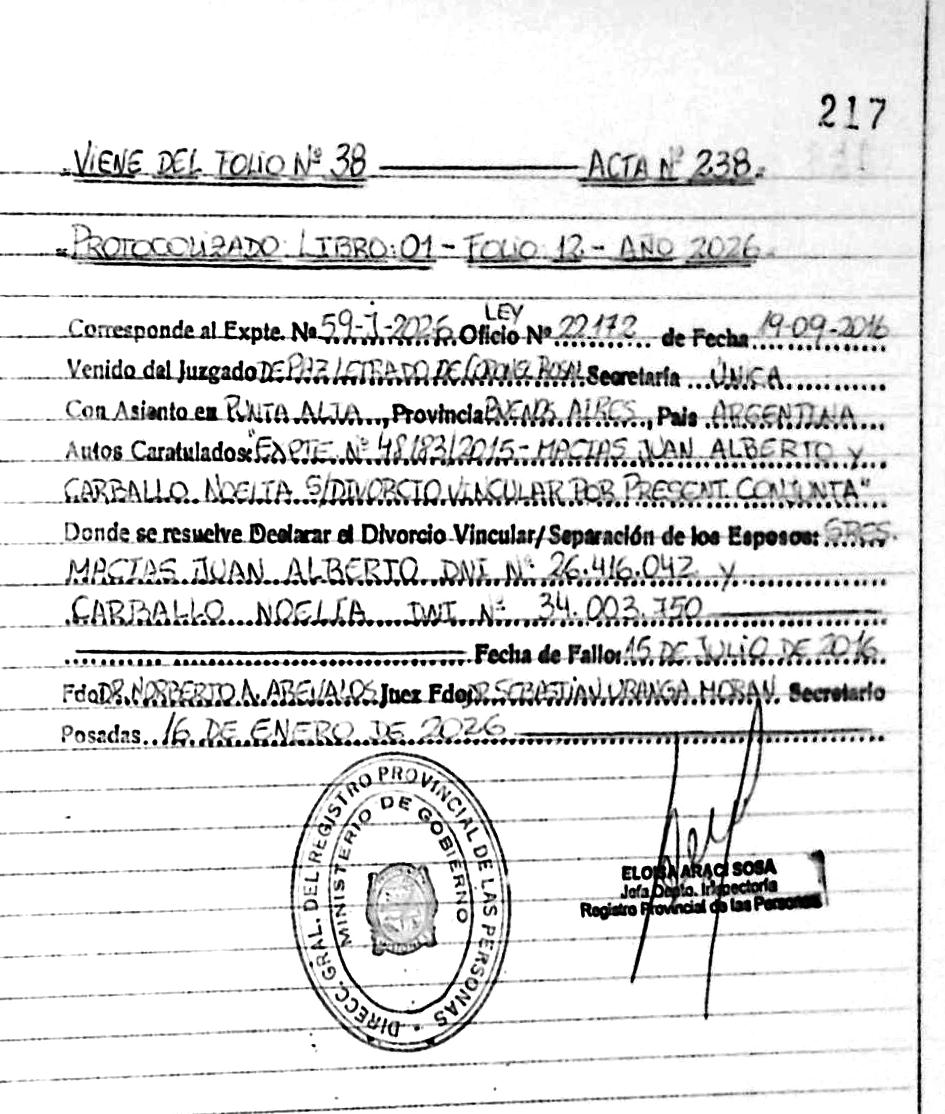 217
VIENE DEL FOLIO Nº 38 ACTA Nº 238.
PROTOCOLIZADO LIBRO: 01 - FOLIO 12 - AÑO 2026.
LEY
Corresponde al Expte. Nº 59-J-2026 Oficio Nº 22.172 de Fecha 19-09-2016
Venido del Juzgado DE PAZ LETRADO DE CORONEL ROSAL Secretaría ÚNICA
Con Asiento en PUNTA ALTA, Provincia BUENOS AIRES, Pais ARGENTINA
Autos Caratulados: "EXPTE. Nº 48183/2015 - MACIAS JUAN ALBERTO Y
CARBALLO NOELIA S/DIVORCIO VINCULAR POR PRESENT. CONJUNTA"
Donde se resuelve Declarar el Divorcio Vincular/Separación de los Esposos: SRES.
MACIAS JUAN ALBERTO DNI Nº 26.416.042 Y
CARBALLO NOELIA DNI Nº 34.003.750
Fecha de Fallo: 15 DE JULIO DE 2016
Fdo DR. NORBERTO A. AREVALOS Juez Fdo DR SEBASTIAN URANGA MORAN Secretario
Posadas 16 DE ENERO DE 2026
DIRECC. GRAL. DEL REGISTRO PROVINCIAL DE LAS PERSONAS
MINISTERIO DE GOBIERNO
ELOISA ARACI SOSA
Jefa Depto. Inspectoria
Registro Provincial de las Personas